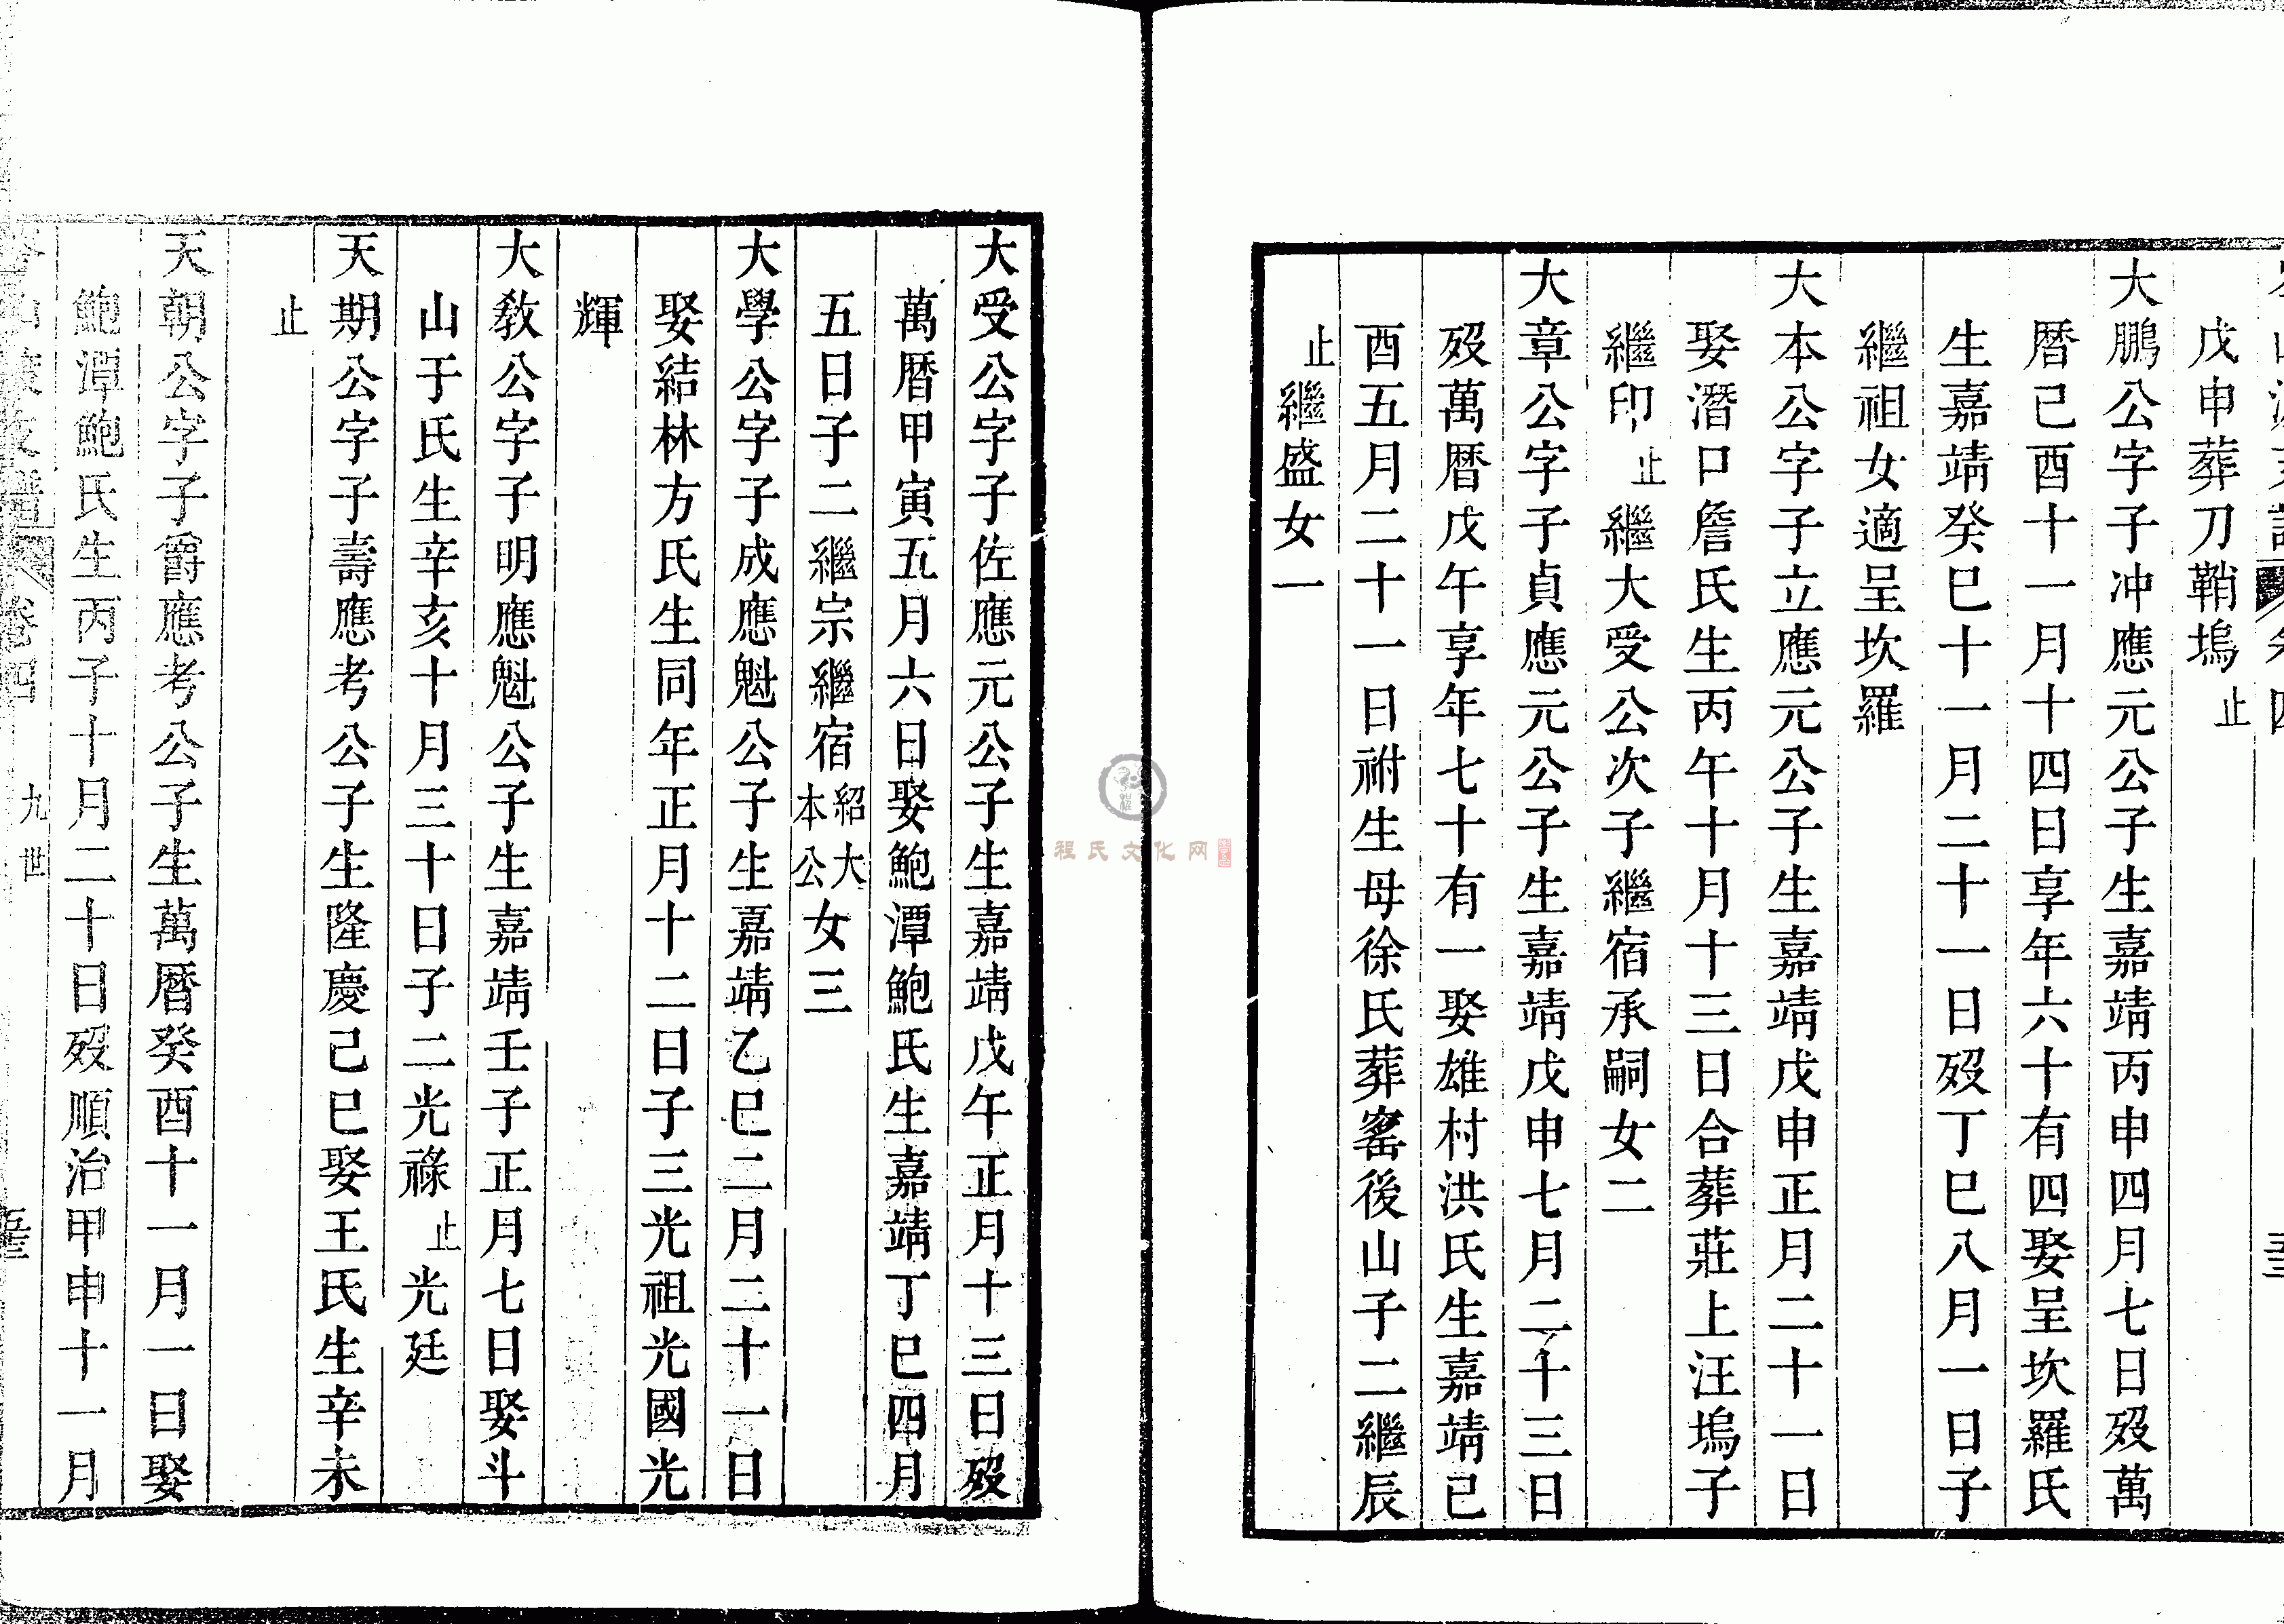 戊申葬刀鞘塢止
大鵬公字子冲應元公子生嘉靖丙申四月七日殁萬
暦己酉十一月十四日享年六十有四娶呈坎羅氏
生嘉靖癸巳十一月二十一日殁丁巳八月一日子
繼祖女適呈坎羅
大本公字子立應元公子生嘉靖戊申正月二十一日
娶潛口詹氏生丙午十月十三日合葬莊上汪塢子
繼印止繼大受公次子繼宿承嗣女二
大章公字子貞應元公子生嘉靖戊申七月二十三日
殁萬暦戊午享年七十有一娶雄村洪氏生嘉靖己
酉五月二十一日祔生母徐氏葬窰後山子二繼辰
止繼盛女一
大受公字子佐應元公子生嘉靖戊午正月十三日殁
萬暦甲寅五月六日娶鮑潭鮑氏生嘉靖丁巳四月
五日子二繼宗繼宿紹大本公女三
大學公字子成應魁公子生嘉靖乙巳二月二十一日
娶結林方氏生同年正月十二日子三光祖光國光
輝
大教公字子明應魁公子生嘉靖壬子正月七日娶斗
山于氏生辛亥十月三十日子二光祿止光廷
天期公字子壽應考公子生隆慶己巳娶王氏生辛未
止
天朝公字子爵應考公子生萬暦癸酉十一月一日娶
鮑潭鮑氏生丙子十月二十日殁順治甲申十一月
卷四
九世
程氏文化网